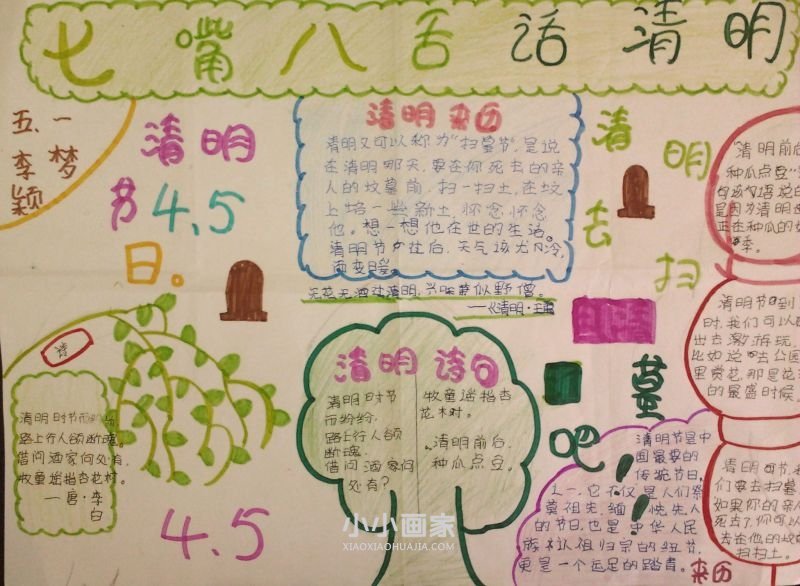 七嘴八舌话清明
五、一
李梦颖
清明
节 4.5
日。
清明来历
清明又可以称为“扫墓节”,是说
在清明那天,要在你死去的亲
人的坟墓前,扫一扫土,在坟
上培一些新土,怀念怀念
他。想一想他在世的生活。
清明节
后,天气该尤
冷,
变日暖。
无花无酒过清明,兴味萧似野僧。
——《清明·王
清明去扫
墓吧!
诗
清明时节雨纷纷,
路上行人欲断魂。
借问酒家何处有,
牧童遥指杏花村。
——唐·李白
4.5
清明诗句
清明时节
雨纷纷,
路上行人欲
断魂。
借问酒家何
处有?
牧童遥指杏
花村。
清明前后,
种瓜点豆。
“清明前后
种瓜点豆”
句谚语说的
是因为清明
正在种瓜的好
季。
清明节到
时,我们可以
出去激游玩,
比如说 去公园
里赏花,那是花
的最盛时候
清明节是中
国最要的
传统节日,
上一,它不仅是人们祭
奠祖先,缅
先人
的节日,也是中华人民
族认祖归宗的纽节,
更是一个远足的踏青。
来历
清明时节,我
们要去扫墓
如果你的亲人
死去了,你可以
去在他的坟
扫扫土。
小小画家
XIAOXIAOHUAJIA.COM